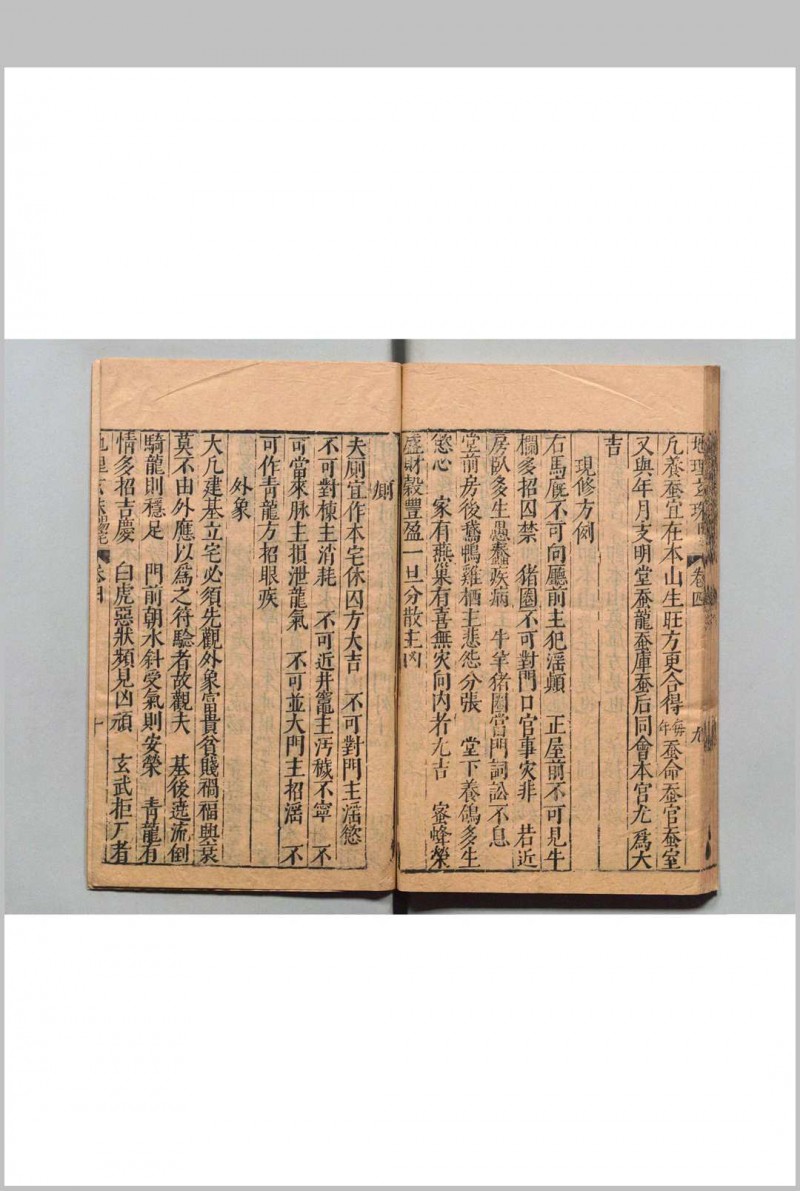 地理玄珠 卷四 九
凡養蚕宜在本山生旺方更合得每年蚕命蚕官蚕室
又與年月支明堂蚕龍蚕庫蚕后同會本宫尤爲大
吉
現修方例
右馬厩不可向廳前主犯滛顛 正屋前不可見牛
欄多招囚禁 猪圈不可對門口官事灾非 若近
房臥多生愚蠢疾病 牛羊猪圈當門詞訟不息
堂前房後鵝鴨雞栖主悲怨分張 堂下養鴿多生
慾心 家有燕巢有喜無灾向内者尤吉 蜜蜂榮
盛財穀豐盈一旦分散主凶
厠
夫厠宜作本宅休囚方大吉 不可對門主滛慾
不可對棟主消耗 不可近井竈主汚穢不寧 不
可當來脉主損泄龍氣 不可並大門主招滛 不
可作青龍方招眼疾
外象
大凡建基立宅必須先觀外象富貴貧賤禍福與衰
莫不由外應以爲之符驗者故觀夫 基後遶流倒
騎龍則穩足 門前朝水斜受氣則安榮 青龍有
情多招吉慶 白虎惡狀頻見凶頑 玄武拒尸者
卷四 十